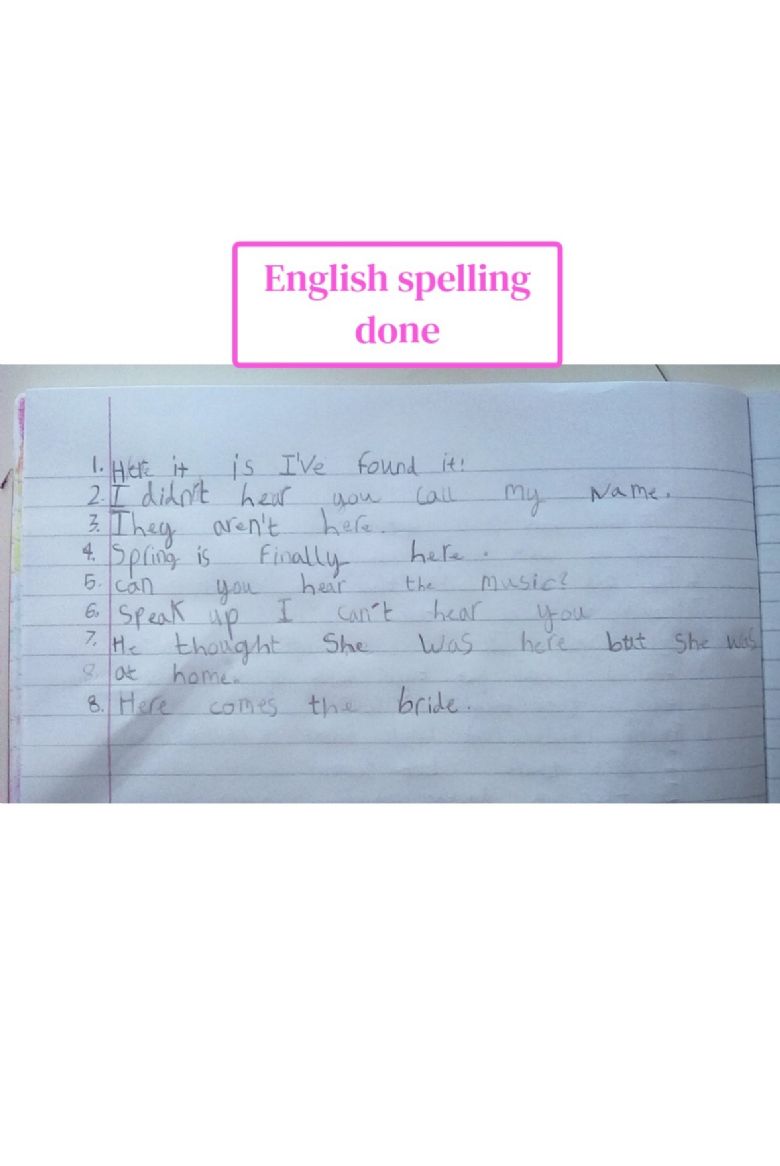 English spelling
done
1. Here it is I've found it!
2. I didn't hear you call my Name.
3. They aren't here.
4. Spring is finally here.
5. can you hear the music?
6. Speak up I can't hear you
7. He thought She was here but She was
8. at home.
8. Here comes the bride.